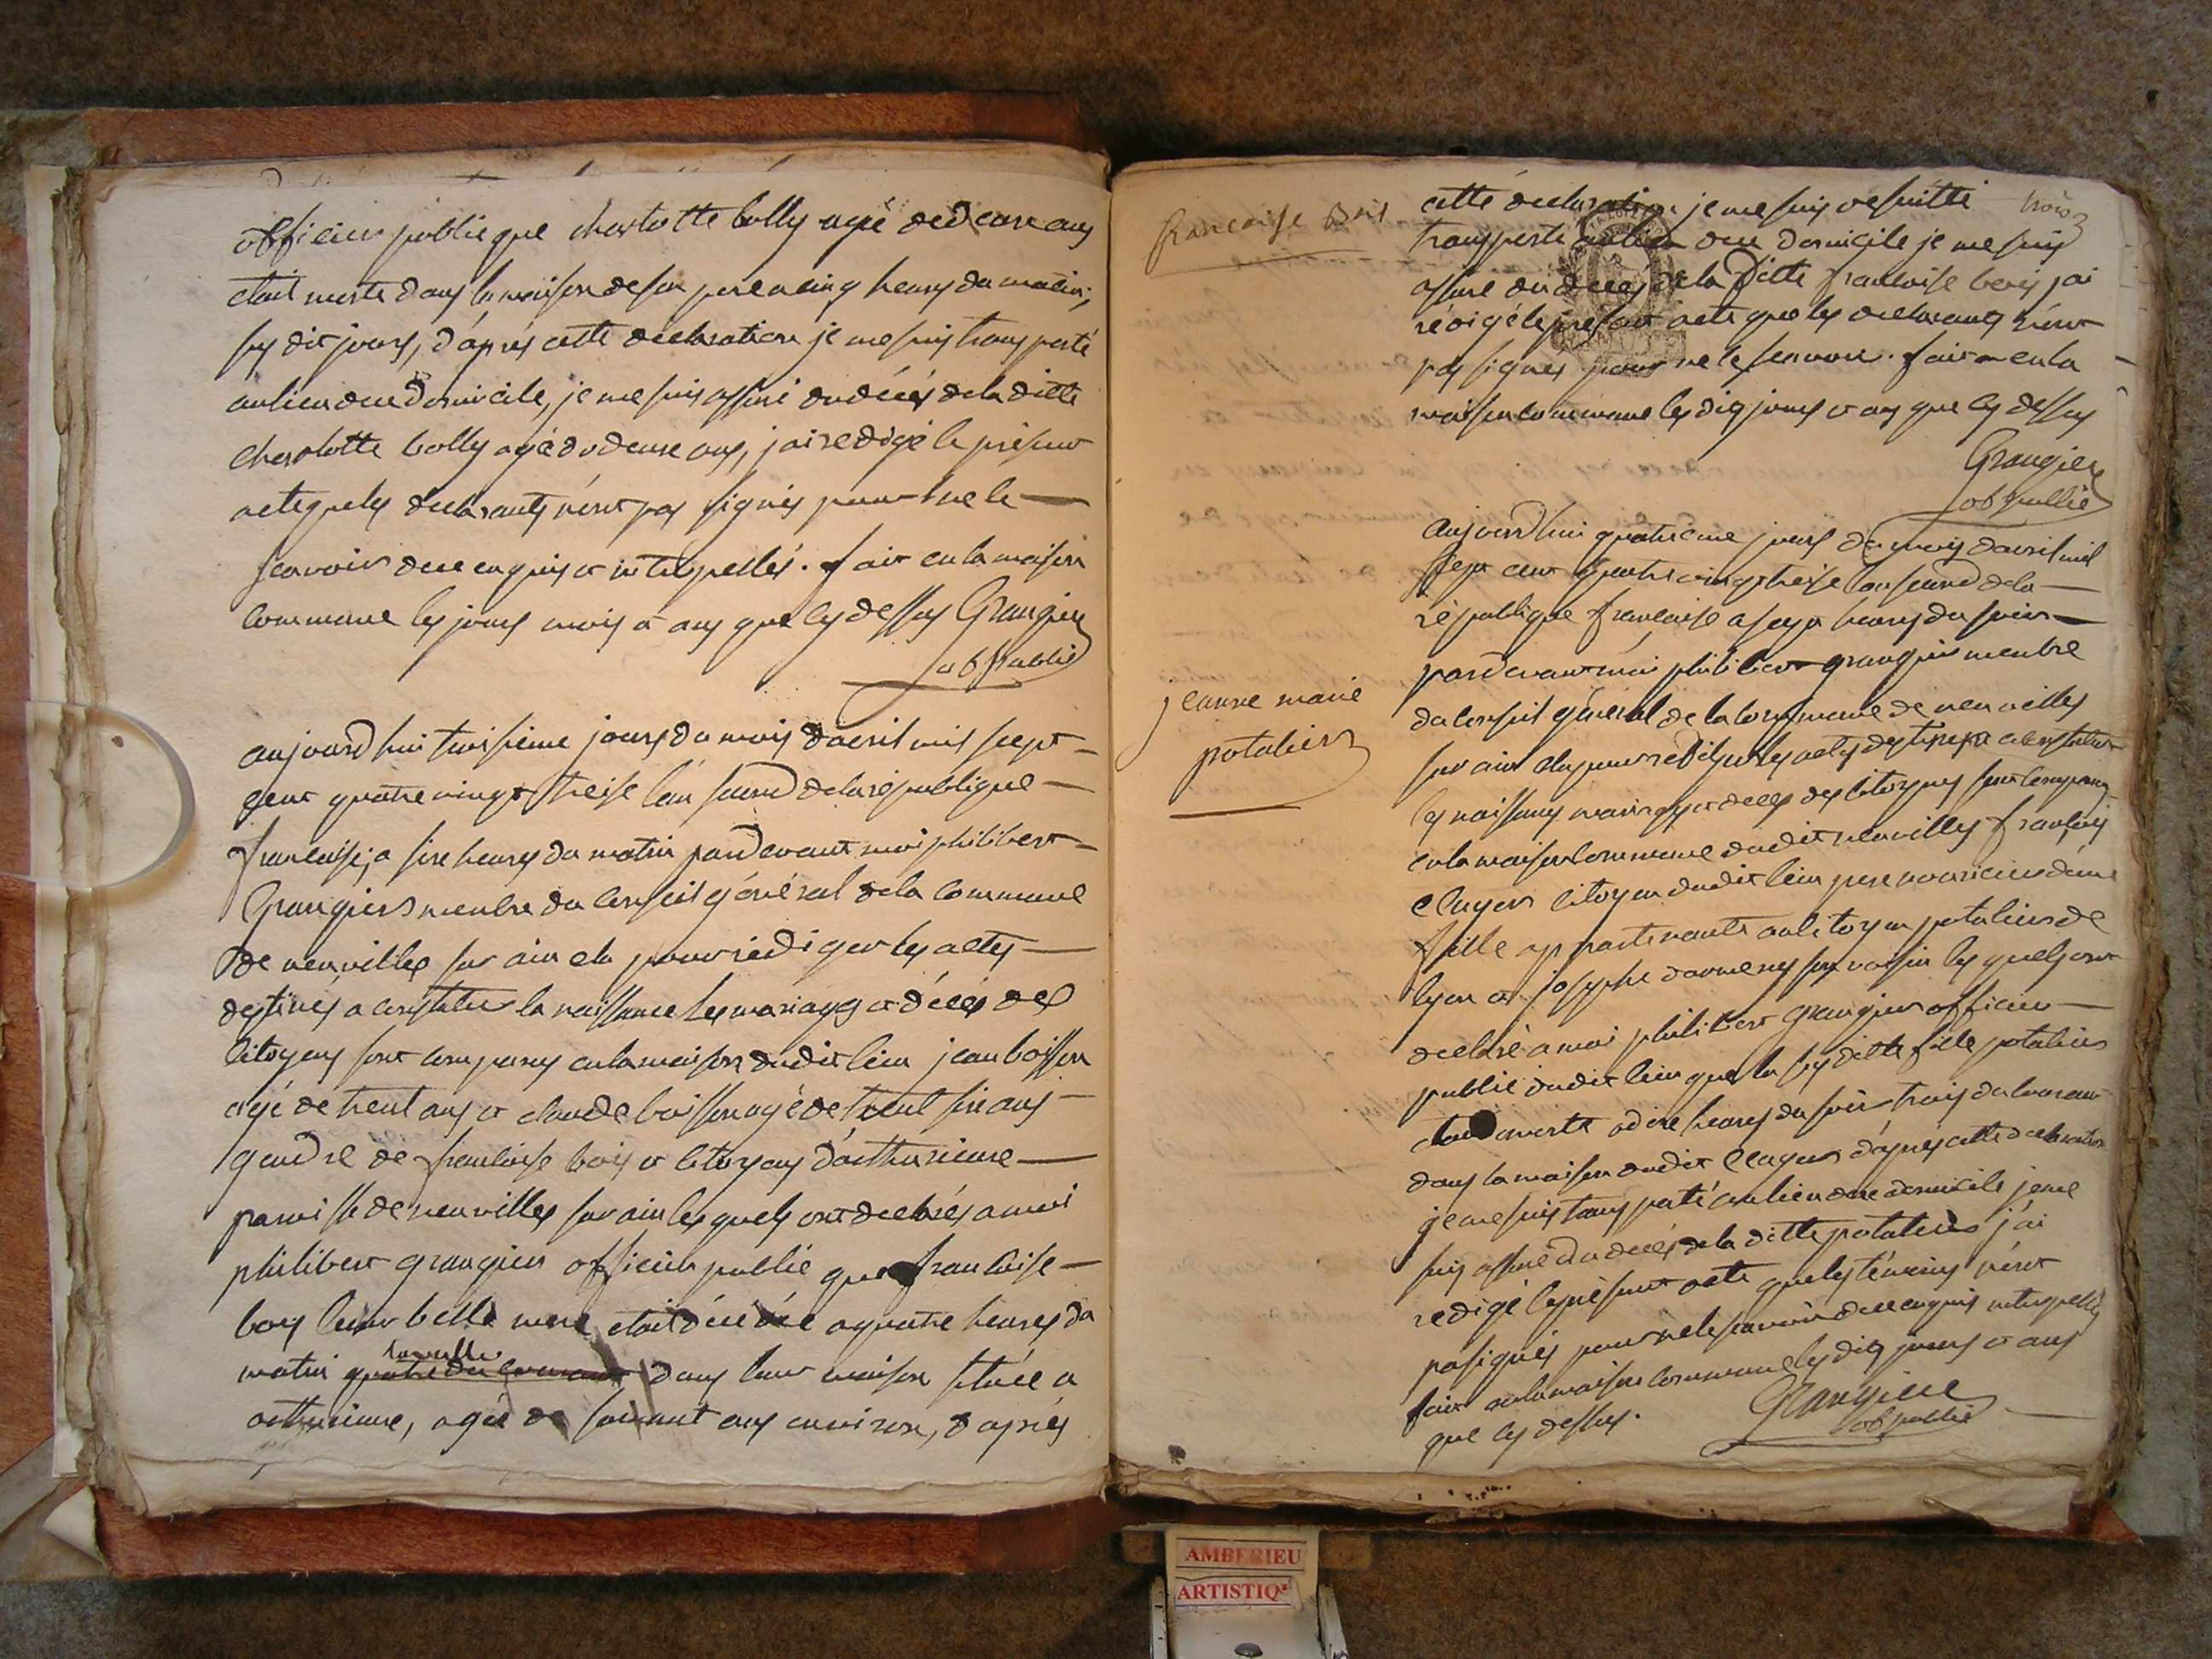 officier public que charlotte bolly agé de deuxe ans
était morte dans la maison de son pere a cinq heures du matin,
sus dit jours, d'aprés cette déclaration je me suis transporté
au lieu de ce domicile, je me suis assuré du décés de la ditte
charlotte bolly agé de deuxe ans, j ai redigé le présent
acte que les declarants n'ont pas signés pour ne le
scavoir de ce enquis et interpellés. fait en la maison
commune les jours mois et ans que cy dessus Grangier
of public
aujourd hui troisième jours du mois d'avril mil sept
cent quatre vingt treise l'an second de la république
francaise, a sixe heures du matin pardevant moi philibert
Grangiers menbre du conseil général de la commune
de neuvilles sur ain elu pour rédiger les actes
destinés a constater la naissance les mariages et décés des
citoyens sont comparus en la maison dudit lieu jean boisson
agé de trent ans et claude boisson agé de trent six ans
gendre de francoise bois et citoyens
paroisse de neuvilles sur ain les quels ont declarés a moi
philibert grangier officier public que francoise
bois leur belle mere était décédée a quatre heures du
matin quatre du courant dans leur maison située a
agée de soixant ans environ, d'aprés
francoise Bois
cette déclaration je me suis de suitte
trois
transporté au lieu de ce domicile je me suis
assuré du décés de la ditte francoise bois j ai
rédigé le présent acte que les declarants n'ont
pas signés pour ne le scavoir. fait en la
maison commune les dis jours et ans que cy dessus
Grangier
of public
jeanne marie
potaliers
aujourd hui quatrieme jours du mois d'avril mil
sept cent quatre vingt treise l'an second de la
république francaise a sept heures du soir
pardevant moi philibert grangier menbre
du conseil général de la commune de neuvilles
sur ain elu pour rédiger les actes destinés a constater
les naissances mariages et décés des citoyens sont comparus
en la maison commune dudit neuvilles francois
citoyen dudit lieu pere nouricier d'une
fille appartenante au citoyen potaliers de
lyon et josephe son voisin les quels ont
declaré a moi philibert grangier officier
public dudit lieu que la sus ditte fille potaliers
était morte a dixe heures du soir trois du courant
dans la maison dudit d'aprés cette déclaration
je me suis transporté au lieu de ce domicile je me
suis assuré du décés de la ditte potaliers j'ai
redigé le présent acte que les témoins n'ont
pas signés pour ne le scavoir de ce enquis interpellés
fait en la maison commune les dis jours et ans
que cy dessus.
Grangier
of public
AMBERIEU
ARTISTIQ